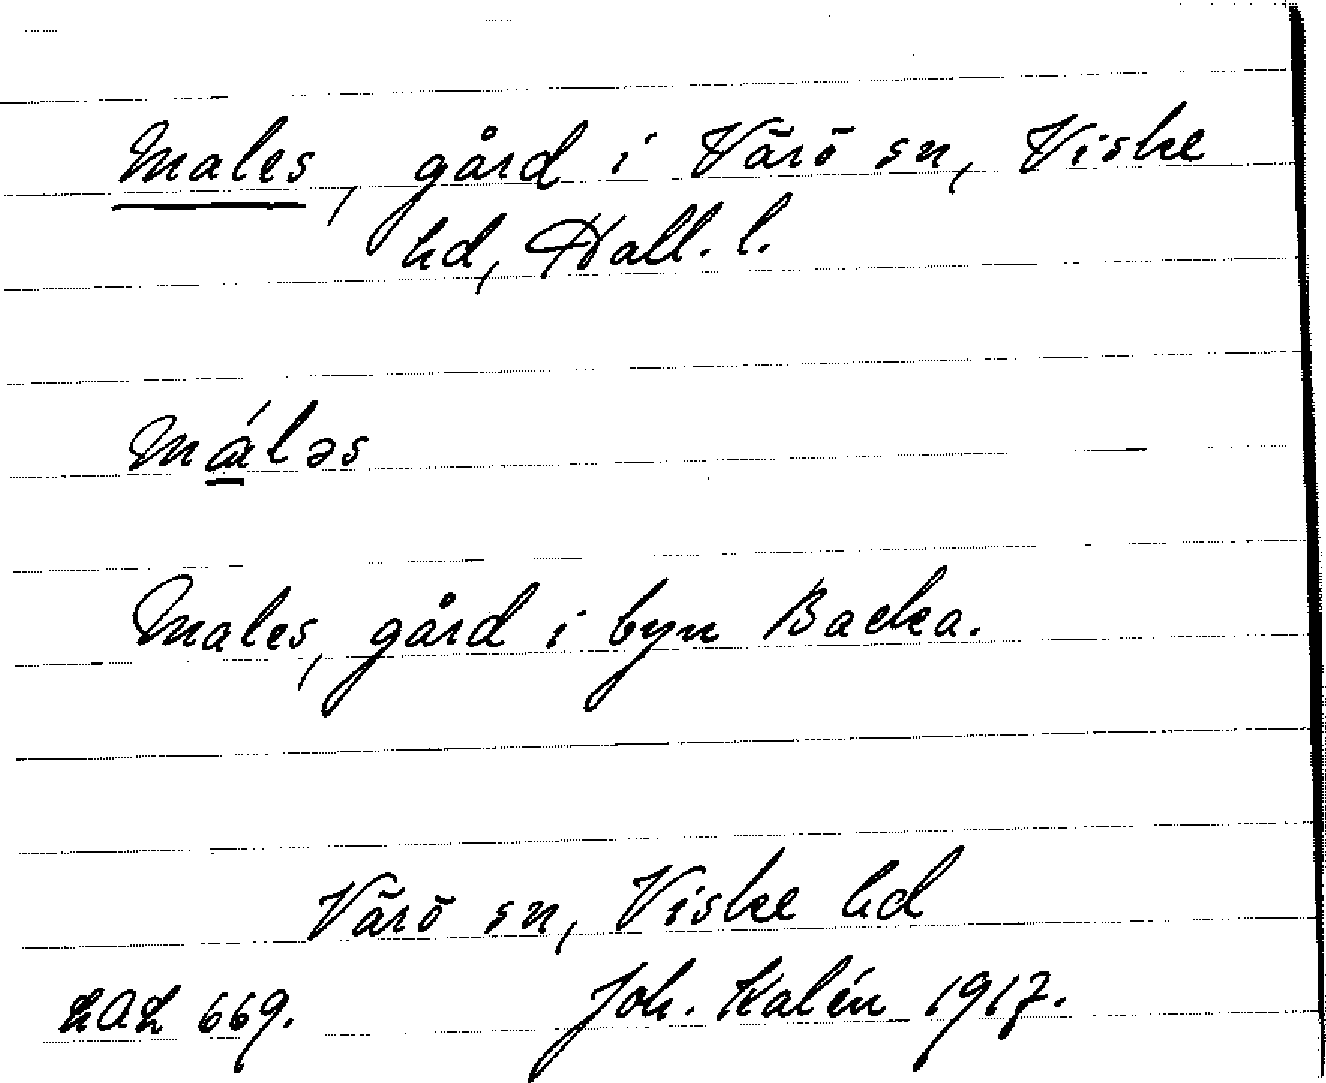 Males, gård i Värö sn, Viske
hd, Hall. l.
máləs
Males, gård i byn Backa.
Värö sn, Viske hd
LAL 669. Joh. Kalén 1917.